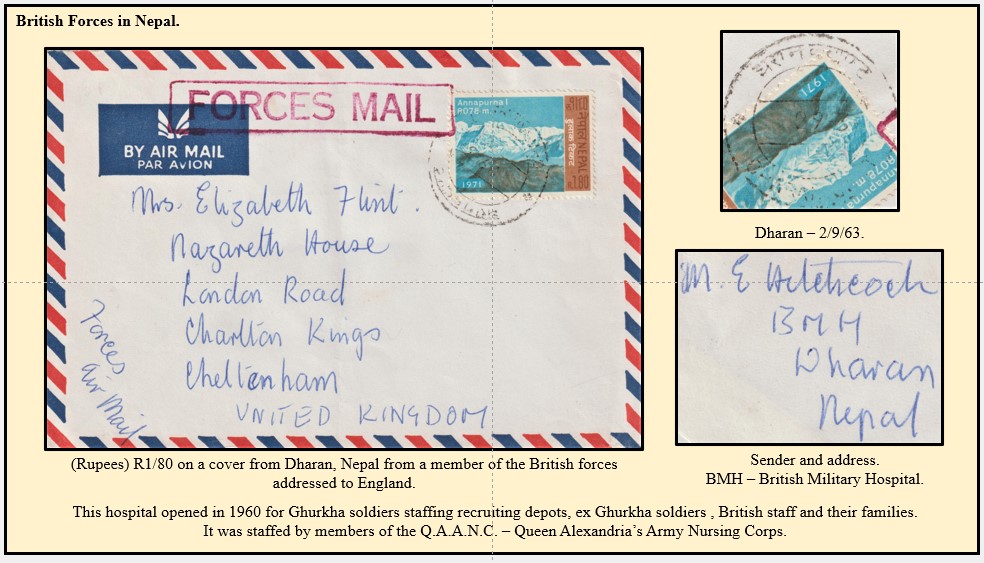 British Forces in Nepal.
FORCES MAIL
BY AIR MAIL
PAR AVION
Annapurna I
8078 m.
1971
नेपाल NEPAL
1.80
Mrs. Elizabeth Flint.
Nazareth House
London Road
Charlton Kings
Cheltenham
UNITED KINGDOM
Forces
Air Mail
(Rupees) R1/80 on a cover from Dharan, Nepal from a member of the British forces
addressed to England.
1971
Annapurna
8078 m.
Dharan – 2/9/63.
M. E Hitchcock
BMH
Dharan
Nepal
Sender and address.
BMH – British Military Hospital.
This hospital opened in 1960 for Ghurkha soldiers staffing recruiting depots, ex Ghurkha soldiers , British staff and their families.
It was staffed by members of the Q.A.A.N.C. – Queen Alexandria’s Army Nursing Corps.